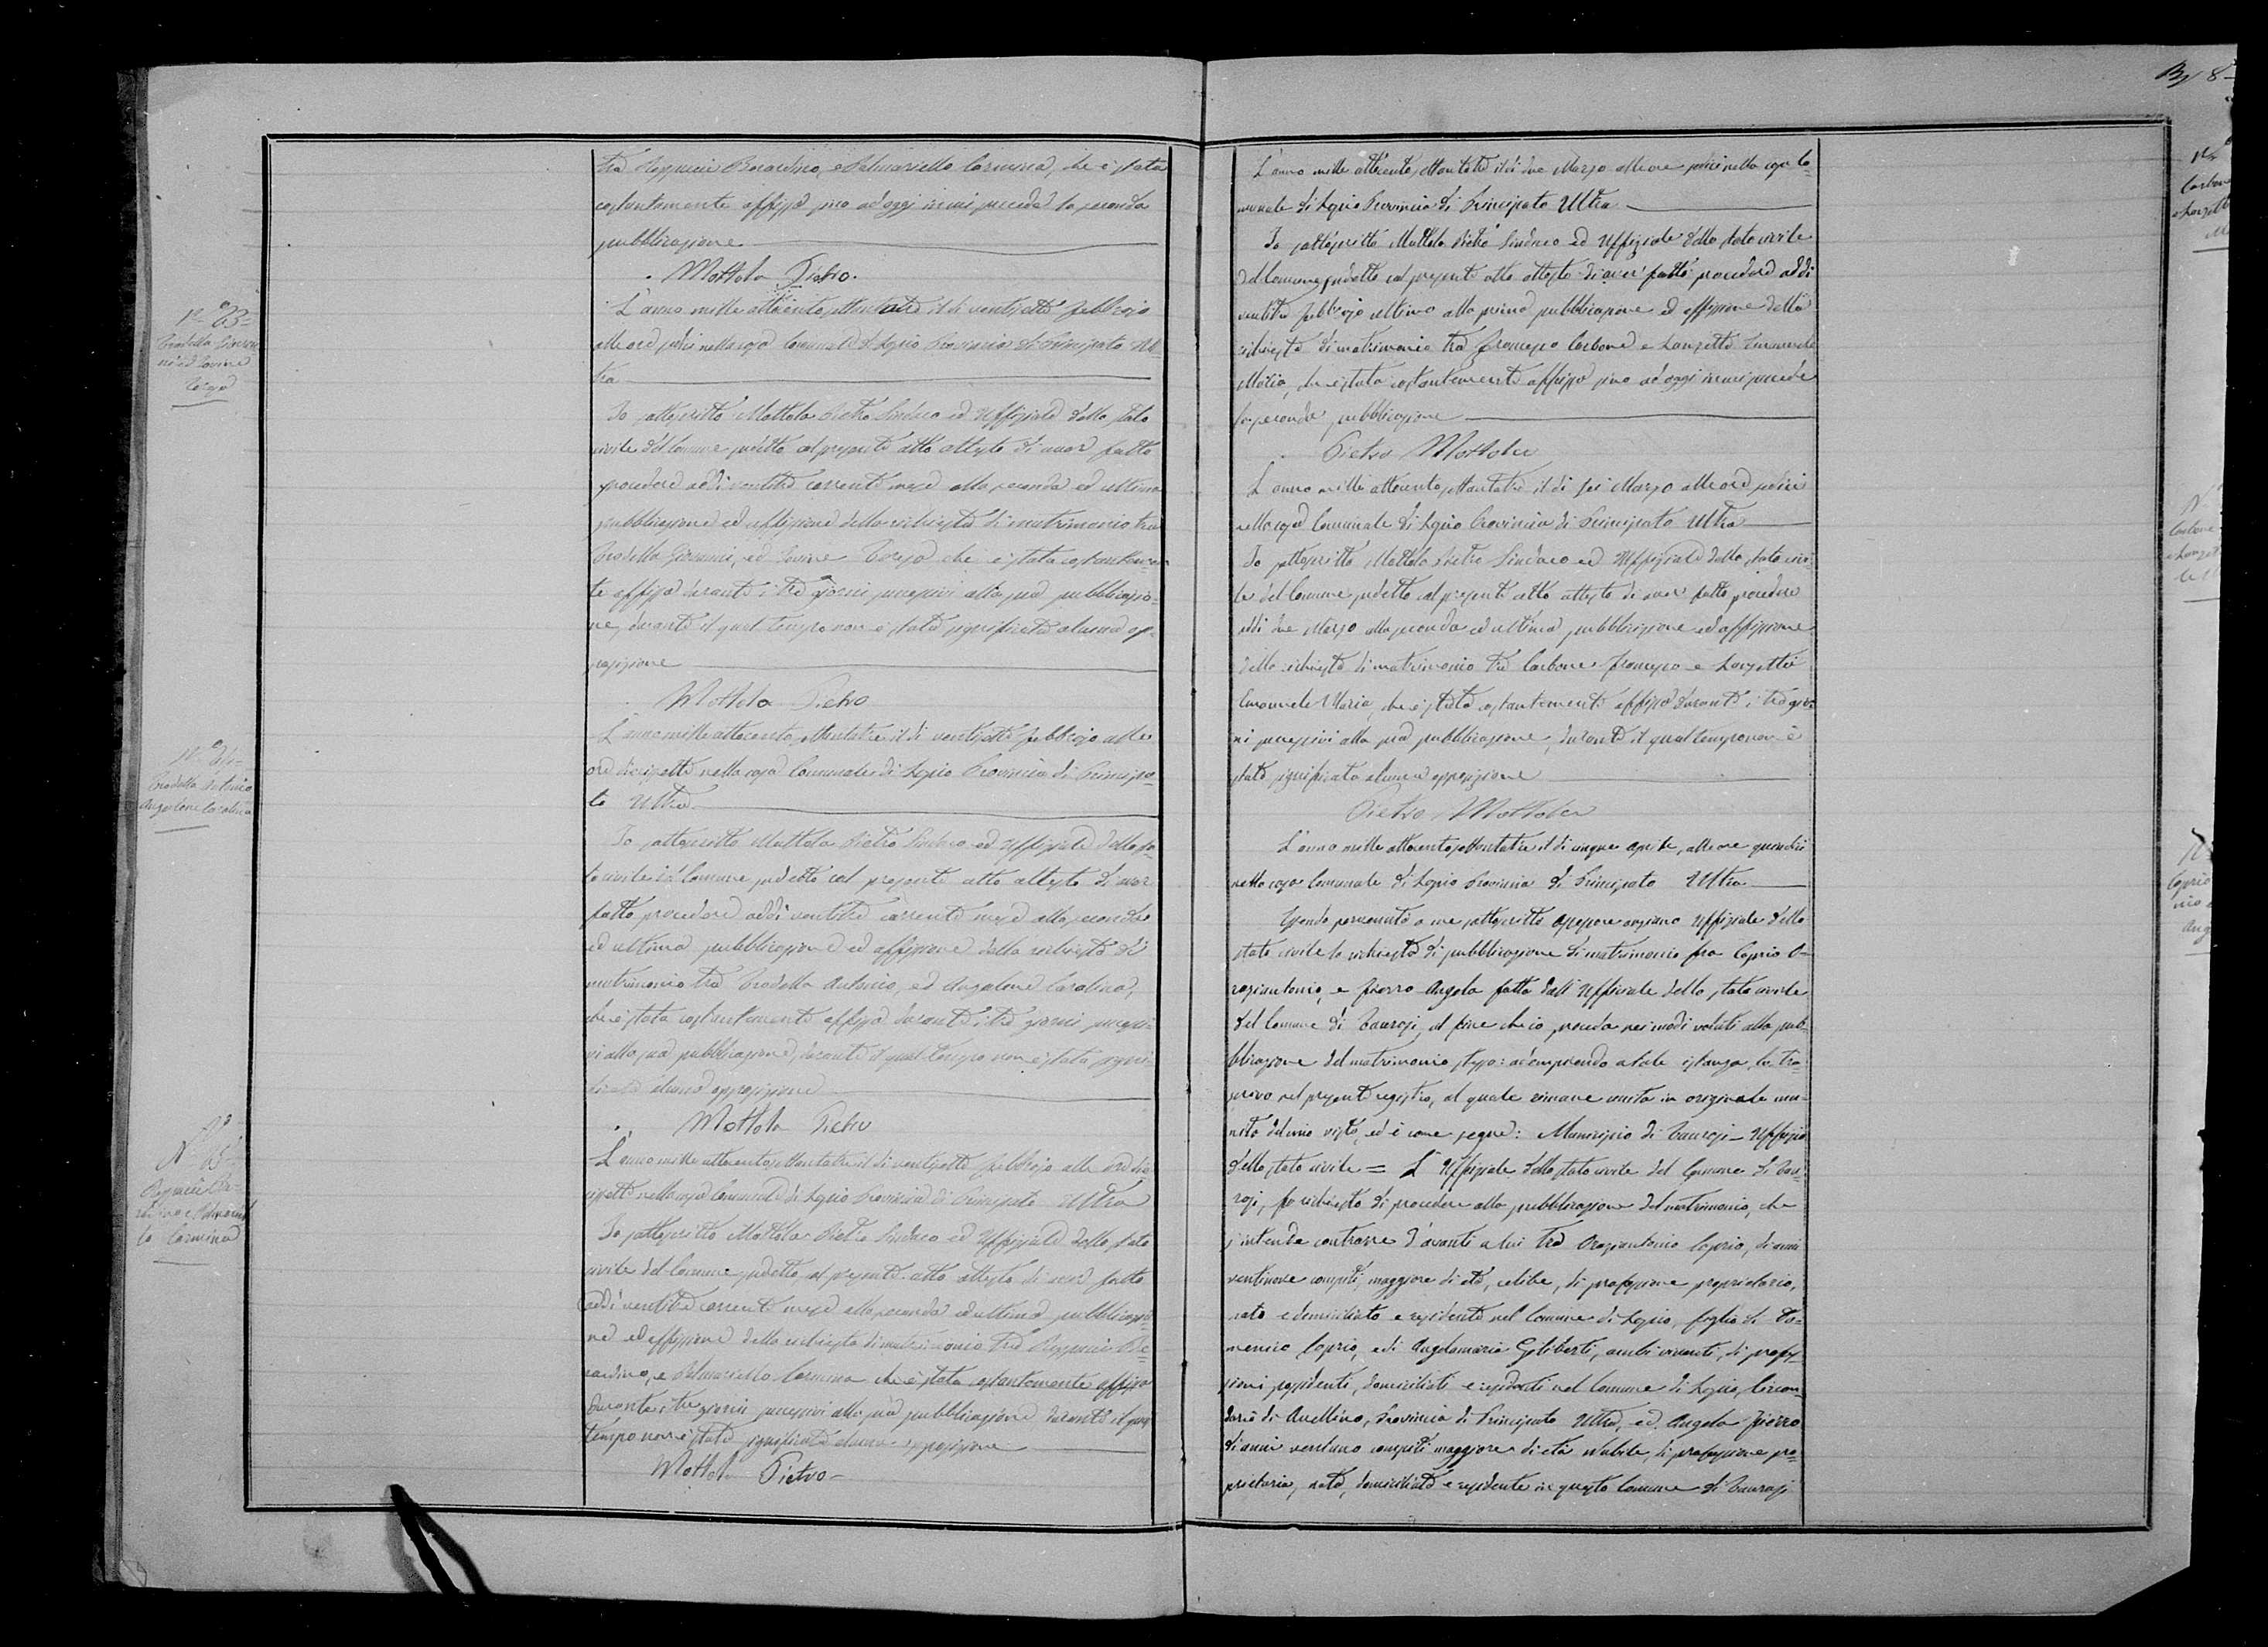 tra Reppucci Berardino, e Palmariello Carmina, che è stata
costantemente affissa sino ad oggi in cui precede la seconda
pubblicazione
Mottola Pietro.
N° 63
Pradella Giovan
ni ed Iovine
Teresa
L'anno mille ottocento settantatre il di ventisette febbrajo
alle ore sedici nella casa Comunale di Lapio Provincia di Principato Ul-
tra
Io sottoscritto Mottola Pietro Sindaco ed Uffiziale dello stato
civile del Comune sudetto col presente atto attesto di aver fatto
procedere addi ventitre corrente mese alla seconda ed ultima
pubblicazione ed affissione della richiesta di matrimonio tra
Pradella Giovanni, ed Iovine Teresa che è stata costantemen-
te affissa durante i tre giorni successivi alla sua pubblicazio-
ne, durante il qual tempo non è stata significata alcuna op-
posizione
Mottola Pietro
N° 64
Pradella Antonio
Angelone Carolina
L'anno mille ottocento settantatre il di ventisette febbrajo alle
ore diecisette nella casa Comunale di Lapio Provincia di Principa-
to Ultra
Io sottoscritto Mottola Pietro Sindaco ed Uffiziale dello sta-
to civile del Comune sudetto col presente atto attesto di aver
fatto procedere addi ventitre corrente mese alla seconda
ed ultima pubblicazione ed affissione della richiesta di
matrimonio tra Pradella Antonio, ed Angelone Carolina,
che è stata costantemente affissa durante i tre giorni successi-
vi alla sua pubblicazione, durante il qual tempo non è stata signi-
ficata alcuna opposizione
Mottola Pietro
N° 65
Reppucci Be-
rardino e Palmariel
lo Carmina
L'anno mille ottocento settantatre il di ventisette febbrajo alle ore die-
cisette nella casa Comunale di Lapio Provincia di Principato Ultra
Io sottoscritto Mottola Pietro Sindaco ed Uffiziale dello stato
civile del Comune sudetto, col presente atto attesto di aver fatto
addi ventitre corrente mese alla seconda ed ultima pubblicazio-
ne ed affissione della richiesta di matrimonio tra Reppucci Be-
rardino, e Palmariello Carmina che è stata costantemente affissa
durante i tre giorni successivi alla sua pubblicazione durante il qual
tempo non è stata significata alcuna opposizione
Mottola Pietro
8
L'anno mille ottocento settantatre il di due Marzo alle ore sedici nella casa Co-
munale di Lapio Provincia di Principato Ultra
Io sottoscritto Mottola Pietro Sindaco ed Uffiziale dello stato civile
del Comune sudetto col presente atto attesto di aver fatto procedere addi
ventitre febbrajo ultimo alla prima pubblicazione ed affissione della
richiesta di matrimonio tra Francesco Carbone e Lanzetta Emanuela
Maria, che è stata costantemente affissa sino ad oggi in cui precede
la seconda pubblicazione
Pietro Mottola
L'anno mille ottocento settantatre il di sei Marzo alle ore sedici
nella casa Comunale di Lapio Provincia di Principato Ultra
Io sottoscritto Mottola Pietro Sindaco ed Uffiziale dello stato civi-
le del Comune sudetto col presente atto attesto di aver fatto procedere
addi due Marzo alla seconda ed ultima pubblicazione ed affissione
della richiesta di matrimonio tra Carbone Francesco e Lanzetta
Emanuela Maria, che è stata costantemente affissa durante i tre gior
ni successivi alla sua pubblicazione, durante il qual tempo non è
stata significata alcuna opposizione
Pietro Mottola
L'anno mille ottocento settantatre il di cinque Aprile, alle ore quindici
nella casa Comunale di Lapio Provincia di Principato Ultra
Essendo pervenuta a me sottoscritto Assessore anziano Uffiziale dello
stato civile la richiesta di pubblicazione di matrimonio fra Caprio O-
raziantonio, e Fierro Angela fatta dall'Uffiziale dello stato civile
del Comune di Taurasi, al fine che io proceda nei modi voluti alla pub-
blicazione del matrimonio stesso: adempiendo a tale istanza, la tra-
scrivo nel presente registro, al quale rimane unita in originale mu-
nita del mio visto, ed è come segue: Municipio di Taurasi - Uffizio
dello stato civile = L'Uffiziale dello stato civile del Comune di Tau-
rasi, fa richiesta di procedere alla pubblicazione del matrimonio, che
s'intende contrarre d'avanti a lui tra Oraziantonio Caprio, di anni
ventinove compiti, maggiore di età, celibe, di professione proprietario,
nato e domiciliato e residente nel Comune di Lapio, figlio di Do-
menico Caprio, e di Angelamaria Giliberti, ambi viventi, di profes-
sioni possidenti, domiciliati e residenti nel Comune di Lapio, Circon-
dario di Avellino, Provincia di Principato Ultra, ed Angela Fierro
di anni ventuno compiti maggiore di età nubile, di professione pro-
prietaria, nata, domiciliata e residente in questo Comune di Taurasi